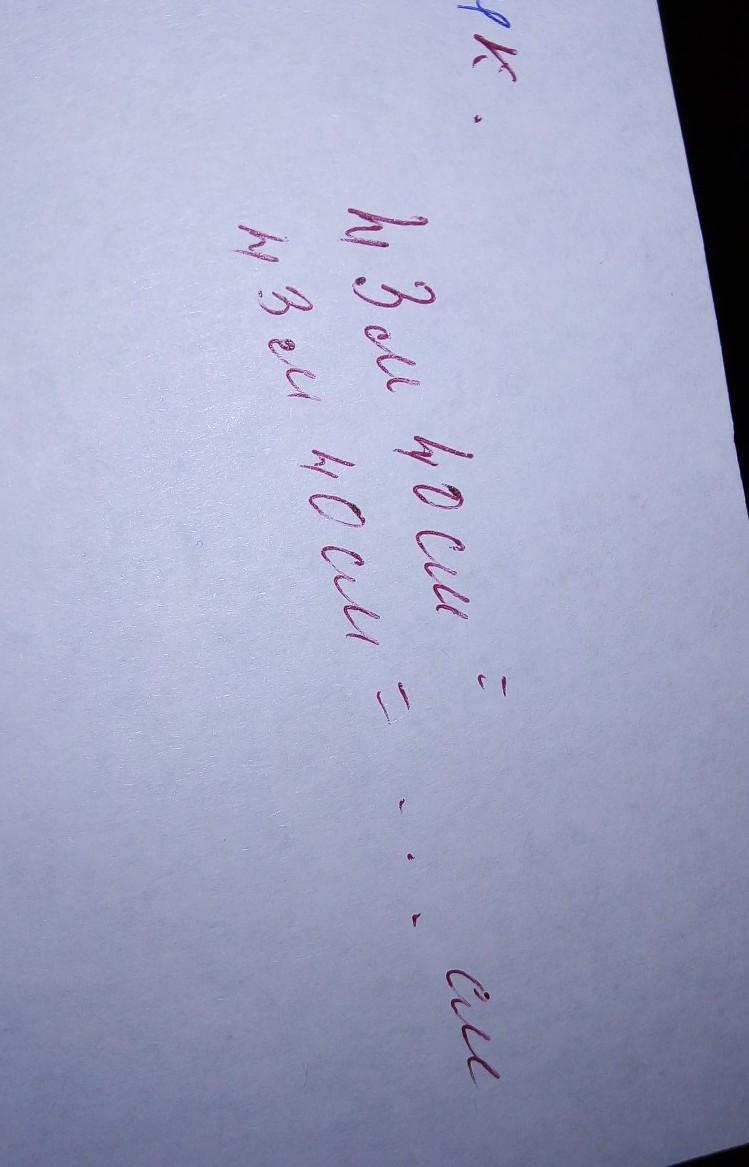 к.
43м 40см =
43м 40см = ... см